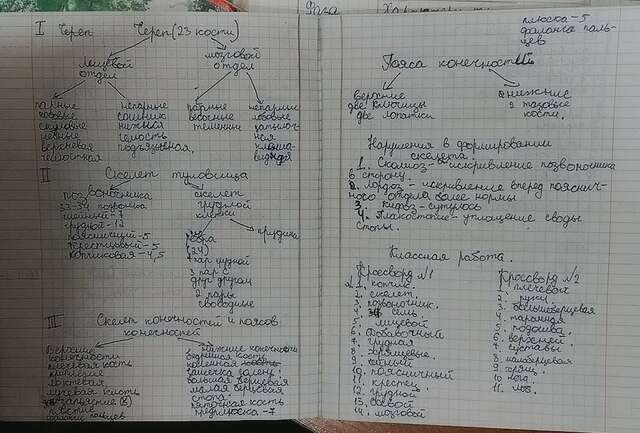 I Череп Череп (23 кости)
Лицевой отдел
мозговой отдел
парные
носовые
скуловые
небные
верхняя
челюстная
непарные
сошник
нижняя
челюсть
подъязычная.
парные
височные
теменны
непарные
лобовые
затылоч-
ная
клино-
видная
II Скелет туловища
позвоночника
33-34 позвонка
шейный-7
грудной-12
поясничный-5
Крестцовый-5
Копчиковая-4,5
скелет
грудной
клетки
ребра
(24)
7 пар грудной
3 пар с
друг другом
2 пары
свободные
грудина
III Скелет конечностей и поясов
конечностей
Верхние
конечности
плечевая кость
локтевая
лучевая кисть
запястие (8)
пястие
нижние конечности
бедренная кость
большая берцевая
малая берцевая
стопа
пяточная кость
предплюсна-7
плюсна-5
фаланга паль-
цев
Пояса конечностей
верхние
две ключицы
две лопатки
нижние
2 тазовые
кости.
Нарушения в формировании
скелета.
1. Сколиоз - искривление позвоночника
в сторону.
2. Лордоз - искривление вперед пояснич-
ного отдела более нормы
3. Кифоз - сутулость
4. Плоскостопие - уплощение своды
стопы.
Классная работа.
Кросворд №1
1. копчик.
2. скелет.
3. позвоночник.
4. семь.
5. лицевой
6. Добавочный
7. грудная
8. хрящевые.
9. шейный
10. поясничный
11. крестец
12. грудной
13. осевой
14. мозговой
Кросворд №2
1. плечевой
2. руки.
3. большеберцовая
4. таранная
5. подошва.
6. верхней.
7. суставы
8. малоберцовая
9. хрящ.
10. нога.
11. лоб.